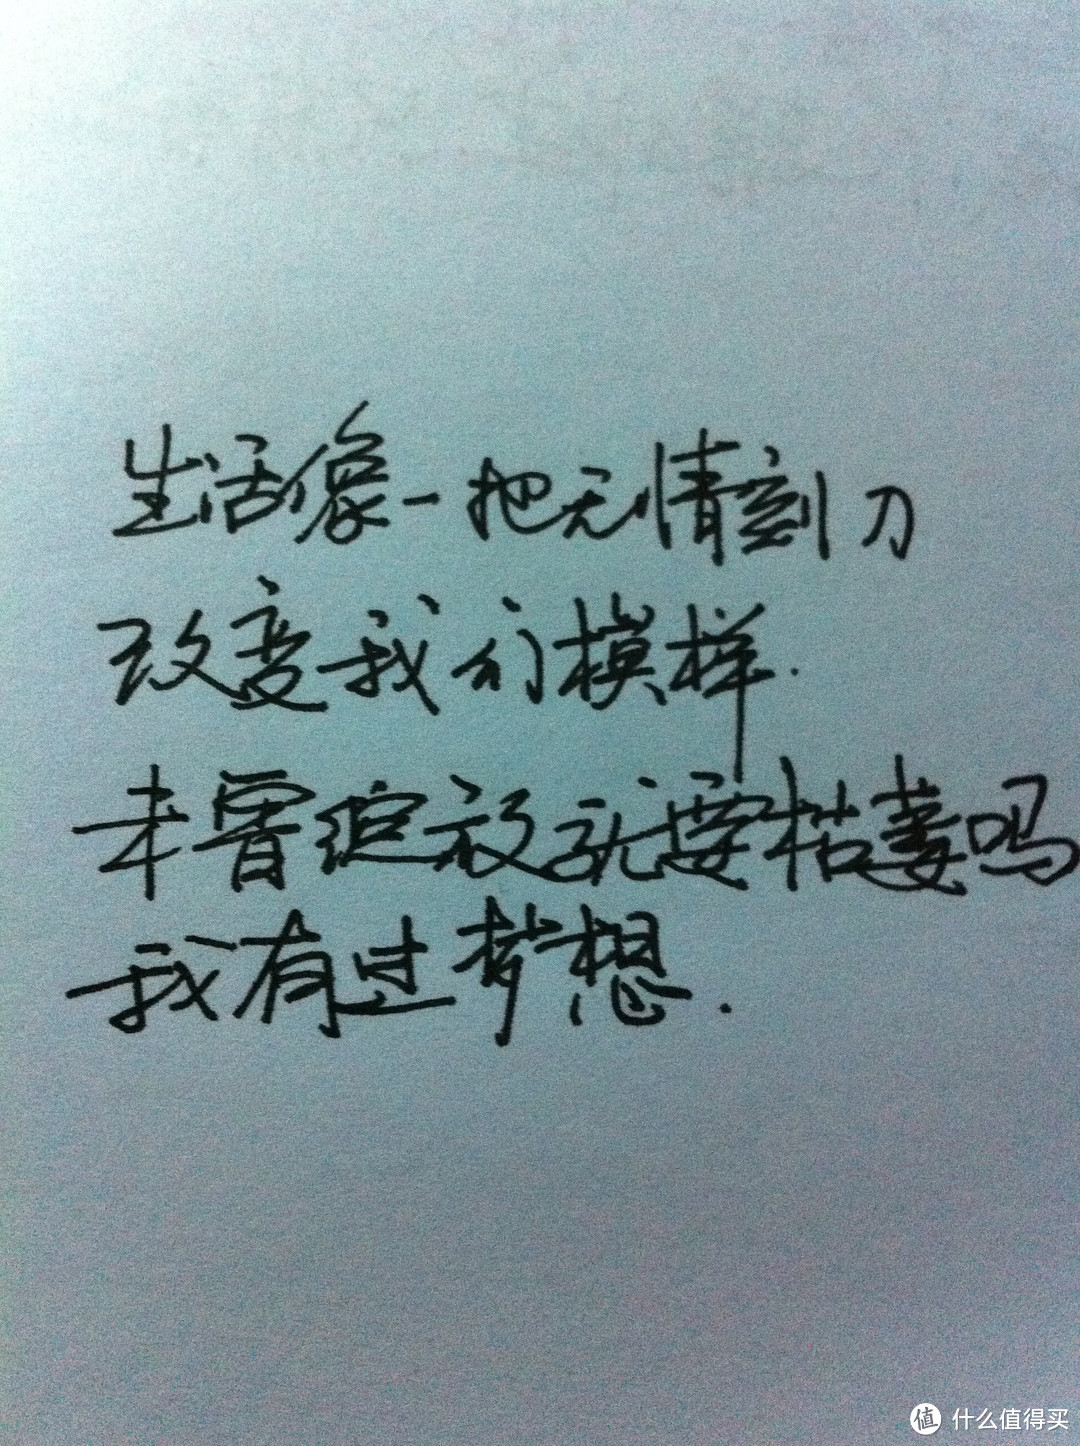 生活像一把无情刻刀
改变我们模样.
未曾绽放就要枯萎吗
我有过梦想.
值 什么值得买